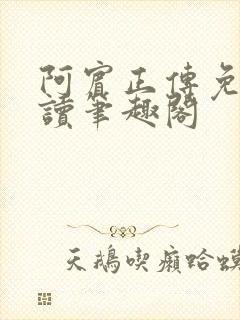 阿賓正傳免
讀筆趣閣
天鵝喫癩蛤蟆